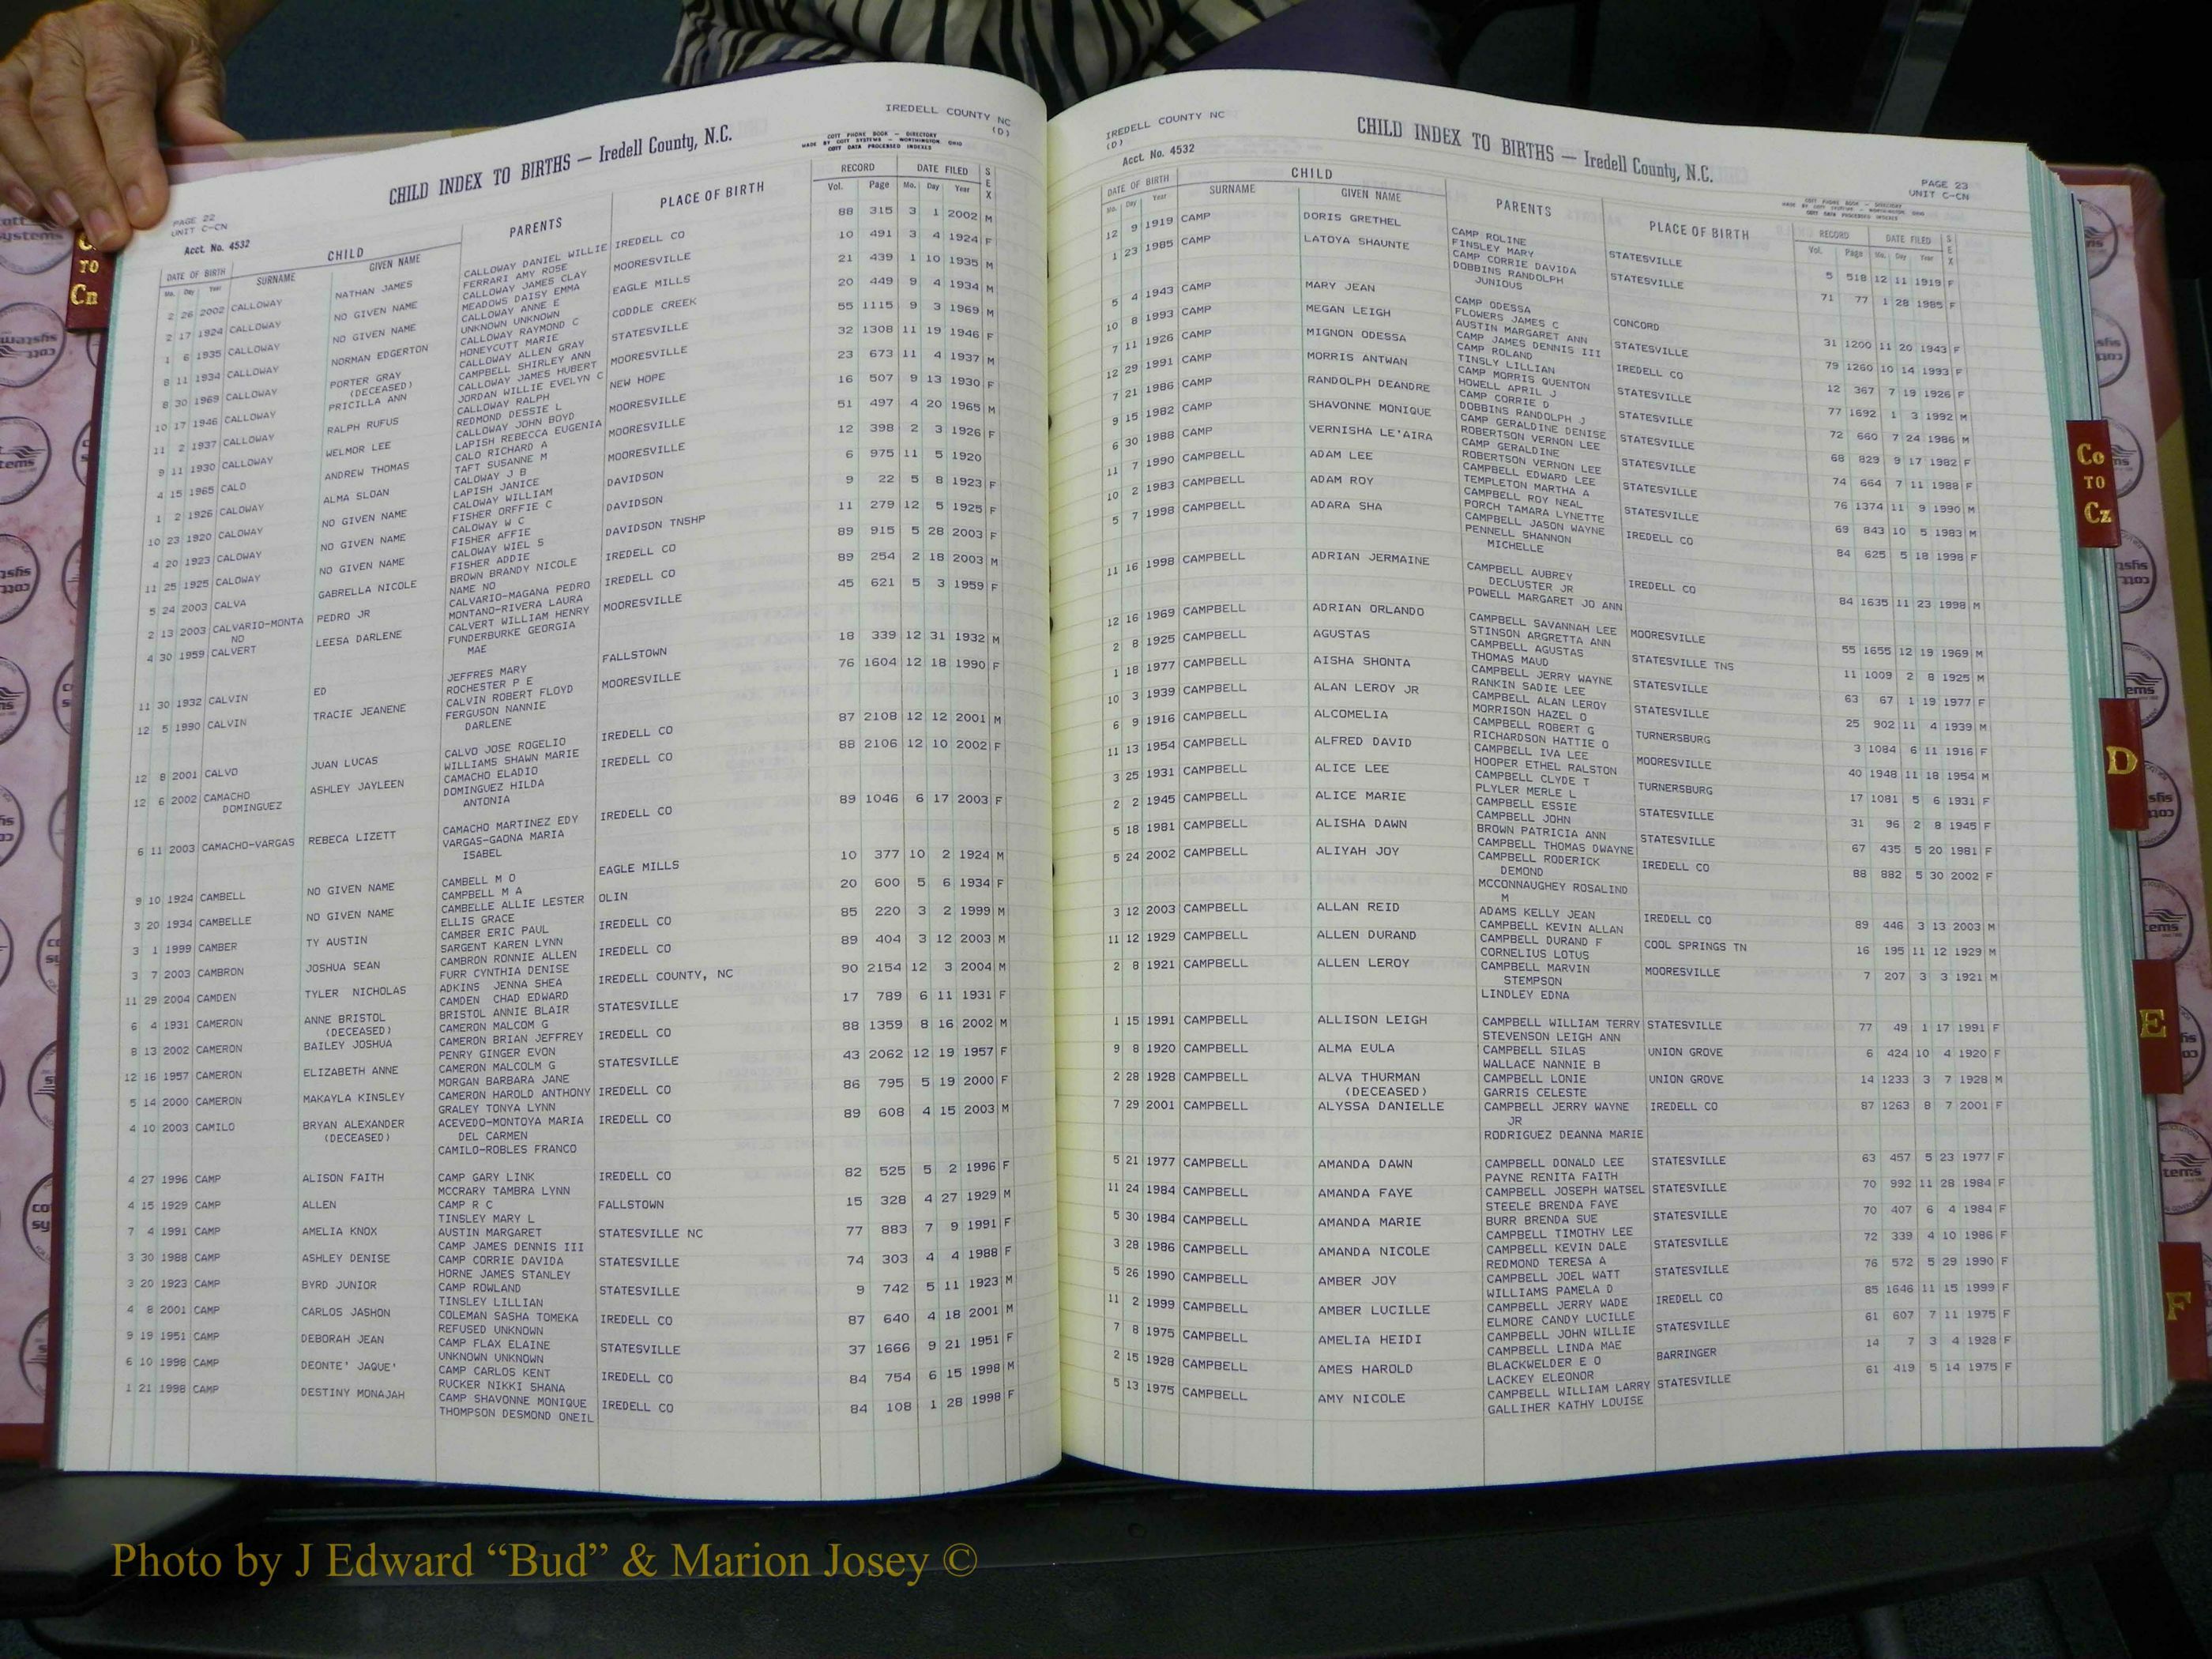 IREDELL COUNTY NC
(D)
CHILD INDEX TO BIRTHS — Iredell County, N.C.
COTT PHONE BOOK — DIRECTORY
MADE BY COTT SYSTEMS — WORTHINGTON, OHIO
COTT DATA PROCESSED INDEXES
PAGE 22
UNIT C-CN
Acct. No. 4532
DATE OF BIRTH CHILD PARENTS PLACE OF BIRTH RECORD DATE FILED SEX
Mo. Day Year SURNAME GIVEN NAME Vol. Page Mo. Day Year
2 26 2002 CALLOWAY NATHAN JAMES CALLOWAY DANIEL WILLIE IREDELL CO 88 315 3 1 2002 M
FERRARI AMY ROSE
2 17 1924 CALLOWAY NO GIVEN NAME CALLOWAY JAMES CLAY MOORESVILLE 10 491 3 4 1924 F
MEADOWS DAISY EMMA
1 6 1935 CALLOWAY NO GIVEN NAME CALLOWAY ANNE E EAGLE MILLS 21 439 1 10 1935 M
UNKNOWN UNKNOWN
8 11 1934 CALLOWAY NORMAN EDGERTON CALLOWAY RAYMOND C CODDLE CREEK 20 449 9 4 1934 M
HONEYCUTT MARIE
8 30 1969 CALLOWAY PORTER GRAY CALLOWAY ALLEN GRAY STATESVILLE 55 1115 9 3 1969 M
(DECEASED) CAMPBELL SHIRLEY ANN
10 17 1946 CALLOWAY PRICILLA ANN CALLOWAY JAMES HUBERT MOORESVILLE 32 1308 11 19 1946 F
JORDAN WILLIE EVELYN C
11 2 1937 CALLOWAY RALPH RUFUS CALLOWAY RALPH NEW HOPE 23 673 11 4 1937 M
REDMOND DESSIE L
9 11 1930 CALLOWAY WELMOR LEE CALLOWAY JOHN BOYD MOORESVILLE 16 507 9 13 1930 F
LAPISH REBECCA EUGENIA
4 15 1965 CALO ANDREW THOMAS CALO RICHARD A MOORESVILLE 51 497 4 20 1965 M
TAFT SUSANNE M
1 2 1926 CALOWAY ALMA SLOAN CALOWAY J B MOORESVILLE 12 398 2 3 1926 F
LAPISH JANICE
10 23 1920 CALOWAY NO GIVEN NAME CALOWAY WILLIAM DAVIDSON 6 975 11 5 1920
FISHER ORFFIE C
4 20 1923 CALOWAY NO GIVEN NAME CALOWAY W C DAVIDSON 9 22 5 8 1923 F
FISHER AFFIE
11 25 1925 CALOWAY NO GIVEN NAME CALOWAY WIEL S DAVIDSON TNSHP 11 279 12 5 1925 F
FISHER ADDIE
5 24 2003 CALVA GABRELLA NICOLE BROWN BRANDY NICOLE IREDELL CO 89 915 5 28 2003 F
NAME NO
2 13 2003 CALVARIO-MONTA PEDRO JR CALVARIO-MAGANA PEDRO IREDELL CO 89 254 2 18 2003 M
NO MONTANO-RIVERA LAURA
4 30 1959 CALVERT LEESA DARLENE CALVERT WILLIAM HENRY MOORESVILLE 45 621 5 3 1959 F
FUNDERBURKE GEORGIA
MAE
11 30 1932 CALVIN ED JEFFRES MARY FALLSTOWN 18 339 12 31 1932 M
ROCHESTER P E
12 5 1990 CALVIN TRACIE JEANENE CALVIN ROBERT FLOYD MOORESVILLE 76 1604 12 18 1990 F
FERGUSON NANNIE
DARLENE
12 8 2001 CALVO JUAN LUCAS CALVO JOSE ROGELIO IREDELL CO 87 2108 12 12 2001 M
WILLIAMS SHAWN MARIE
12 6 2002 CAMACHO ASHLEY JAYLEEN CAMACHO ELADIO IREDELL CO 88 2106 12 10 2002 F
DOMINGUEZ DOMINGUEZ HILDA
ANTONIA
6 11 2003 CAMACHO-VARGAS REBECA LIZETT CAMACHO MARTINEZ EDY IREDELL CO 89 1046 6 17 2003 F
VARGAS-GAONA MARIA
ISABEL
9 10 1924 CAMBELL NO GIVEN NAME CAMBELL M O EAGLE MILLS 10 377 10 2 1924 M
CAMPBELL M A
3 20 1934 CAMBELLE NO GIVEN NAME CAMBELLE ALLIE LESTER OLIN 20 600 5 6 1934 F
ELLIS GRACE
3 1 1999 CAMBER TY AUSTIN CAMBER ERIC PAUL IREDELL CO 85 220 3 2 1999 M
SARGENT KAREN LYNN
3 7 2003 CAMBRON JOSHUA SEAN CAMBRON RONNIE ALLEN IREDELL CO 89 404 3 12 2003 M
FURR CYNTHIA DENISE
11 29 2004 CAMDEN TYLER NICHOLAS ADKINS JENNA SHEA IREDELL COUNTY, NC 90 2154 12 3 2004 M
CAMDEN CHAD EDWARD
6 4 1931 CAMERON ANNE BRISTOL BRISTOL ANNIE BLAIR STATESVILLE 17 789 6 11 1931 F
(DECEASED) CAMERON MALCOM G
8 13 2002 CAMERON BAILEY JOSHUA CAMERON BRIAN JEFFREY IREDELL CO 88 1359 8 16 2002 M
PENRY GINGER EVON
12 16 1957 CAMERON ELIZABETH ANNE CAMERON MALCOLM G STATESVILLE 43 2062 12 19 1957 F
MORGAN BARBARA JANE
5 14 2000 CAMERON MAKAYLA KINSLEY CAMERON HAROLD ANTHONY IREDELL CO 86 795 5 19 2000 F
GRALEY TONYA LYNN
4 10 2003 CAMILO BRYAN ALEXANDER ACEVEDO-MONTOYA MARIA IREDELL CO 89 608 4 15 2003 M
(DECEASED) DEL CARMEN
CAMILO-ROBLES FRANCO
4 27 1996 CAMP ALISON FAITH CAMP GARY LINK IREDELL CO 82 525 5 2 1996 F
MCCRARY TAMBRA LYNN
4 15 1929 CAMP ALLEN CAMP R C FALLSTOWN 15 328 4 27 1929 M
TINSLEY MARY L
7 4 1991 CAMP AMELIA KNOX AUSTIN MARGARET STATESVILLE NC 77 883 7 9 1991 F
CAMP JAMES DENNIS III
3 30 1988 CAMP ASHLEY DENISE CAMP CORRIE DAVIDA STATESVILLE 74 303 4 4 1988 F
HORNE JAMES STANLEY
3 20 1923 CAMP BYRD JUNIOR CAMP ROWLAND STATESVILLE 9 742 5 11 1923 M
TINSLEY LILLIAN
4 8 2001 CAMP CARLOS JASHON COLEMAN SASHA TOMEKA IREDELL CO 87 640 4 18 2001 M
REFUSED UNKNOWN
9 19 1951 CAMP DEBORAH JEAN CAMP FLAX ELAINE STATESVILLE 37 1666 9 21 1951 F
UNKNOWN UNKNOWN
6 10 1998 CAMP DEONTE' JAQUE' CAMP CARLOS KENT IREDELL CO 84 754 6 15 1998 M
RUCKER NIKKI SHANA
1 21 1998 CAMP DESTINY MONAJAH CAMP SHAVONNE MONIQUE IREDELL CO 84 108 1 28 1998 F
THOMPSON DESMOND ONEIL
IREDELL COUNTY NC
(D)
Acct. No. 4532
CHILD INDEX TO BIRTHS — Iredell County, N.C.
PAGE 23
UNIT C-CN
COTT PHONE BOOK — DIRECTORY
MADE BY COTT SYSTEMS — WORTHINGTON, OHIO
COTT DATA PROCESSED INDEXES
DATE OF BIRTH CHILD PARENTS PLACE OF BIRTH RECORD DATE FILED SEX
Mo. Day Year SURNAME GIVEN NAME Vol. Page Mo. Day Year
12 9 1919 CAMP DORIS GRETHEL CAMP ROLINE STATESVILLE 5 518 12 11 1919 F
FINSLEY MARY
1 23 1985 CAMP LATOYA SHAUNTE CAMP CORRIE DAVIDA STATESVILLE 71 77 1 28 1985 F
DOBBINS RANDOLPH
JUNIOUS
5 4 1943 CAMP MARY JEAN CAMP ODESSA CONCORD 31 1200 11 20 1943 F
FLOWERS JAMES C
10 8 1993 CAMP MEGAN LEIGH AUSTIN MARGARET ANN STATESVILLE 79 1260 10 14 1993 F
CAMP JAMES DENNIS III
7 11 1926 CAMP MIGNON ODESSA CAMP ROLAND IREDELL CO 12 367 7 19 1926 F
TINSLY LILLIAN
12 29 1991 CAMP MORRIS ANTWAN CAMP MORRIS QUENTON STATESVILLE 77 1692 1 3 1992 M
HOWELL APRIL J
7 21 1986 CAMP RANDOLPH DEANDRE CAMP CORRIE D STATESVILLE 72 660 7 24 1986 M
DOBBINS RANDOLPH J
9 15 1982 CAMP SHAVONNE MONIQUE CAMP GERALDINE DENISE STATESVILLE 68 829 9 17 1982 F
ROBERTSON VERNON LEE
6 30 1988 CAMP VERNISHA LE'AIRA CAMP GERALDINE STATESVILLE 74 664 7 11 1988 F
ROBERTSON VERNON LEE
11 7 1990 CAMPBELL ADAM LEE CAMPBELL EDWARD LEE STATESVILLE 76 1374 11 9 1990 M
TEMPLETON MARTHA A
10 2 1983 CAMPBELL ADAM ROY CAMPBELL ROY NEAL STATESVILLE 69 843 10 5 1983 M
PORCH TAMARA LYNETTE
5 7 1998 CAMPBELL ADARA SHA CAMPBELL JASON WAYNE IREDELL CO 84 625 5 18 1998 F
PENNELL SHANNON
MICHELLE
11 16 1998 CAMPBELL ADRIAN JERMAINE CAMPBELL AUBREY IREDELL CO 84 1635 11 23 1998 M
DECLUSTER JR
POWELL MARGARET JO ANN
12 16 1969 CAMPBELL ADRIAN ORLANDO CAMPBELL SAVANNAH LEE MOORESVILLE 55 1655 12 19 1969 M
STINSON ARGRETTA ANN
2 8 1925 CAMPBELL AGUSTAS CAMPBELL AGUSTAS STATESVILLE TNS 11 1009 2 8 1925 M
THOMAS MAUD
1 18 1977 CAMPBELL AISHA SHONTA CAMPBELL JERRY WAYNE STATESVILLE 63 67 1 19 1977 F
RANKIN SADIE LEE
10 3 1939 CAMPBELL ALAN LEROY JR CAMPBELL ALAN LEROY STATESVILLE 25 902 11 4 1939 M
MORRISON HAZEL O
6 9 1916 CAMPBELL ALCOMELIA CAMPBELL ROBERT G TURNERSBURG 3 1084 6 11 1916 F
RICHARDSON HATTIE O
11 13 1954 CAMPBELL ALFRED DAVID CAMPBELL IVA LEE MOORESVILLE 40 1948 11 18 1954 M
HOOPER ETHEL RALSTON
3 25 1931 CAMPBELL ALICE LEE CAMPBELL CLYDE T TURNERSBURG 17 1081 5 6 1931 F
PLYLER MERLE L
2 2 1945 CAMPBELL ALICE MARIE CAMPBELL ESSIE STATESVILLE 31 96 2 8 1945 F
CAMPBELL JOHN
5 18 1981 CAMPBELL ALISHA DAWN BROWN PATRICIA ANN STATESVILLE 67 435 5 20 1981 F
CAMPBELL THOMAS DWAYNE
5 24 2002 CAMPBELL ALIYAH JOY CAMPBELL RODERICK IREDELL CO 88 882 5 30 2002 F
DEMOND
MCCONNAUGHEY ROSALIND
M
3 12 2003 CAMPBELL ALLAN REID ADAMS KELLY JEAN IREDELL CO 89 446 3 13 2003 M
CAMPBELL KEVIN ALLAN
11 12 1929 CAMPBELL ALLEN DURAND CAMPBELL DURAND F COOL SPRINGS TN 16 195 11 12 1929 M
CORNELIUS LOTUS
2 8 1921 CAMPBELL ALLEN LEROY CAMPBELL MARVIN MOORESVILLE 7 207 3 3 1921 M
STEMPSON
LINDLEY EDNA
1 15 1991 CAMPBELL ALLISON LEIGH CAMPBELL WILLIAM TERRY STATESVILLE 77 49 1 17 1991 F
STEVENSON LEIGH ANN
9 8 1920 CAMPBELL ALMA EULA CAMPBELL SILAS UNION GROVE 6 424 10 4 1920 F
WALLACE NANNIE B
2 28 1928 CAMPBELL ALVA THURMAN CAMPBELL LONIE UNION GROVE 14 1233 3 7 1928 M
(DECEASED) GARRIS CELESTE
7 29 2001 CAMPBELL ALYSSA DANIELLE CAMPBELL JERRY WAYNE IREDELL CO 87 1263 8 7 2001 F
JR
RODRIGUEZ DEANNA MARIE
5 21 1977 CAMPBELL AMANDA DAWN CAMPBELL DONALD LEE STATESVILLE 63 457 5 23 1977 F
PAYNE RENITA FAITH
11 24 1984 CAMPBELL AMANDA FAYE CAMPBELL JOSEPH WATSEL STATESVILLE 70 992 11 28 1984 F
STEELE BRENDA FAYE
5 30 1984 CAMPBELL AMANDA MARIE BURR BRENDA SUE STATESVILLE 70 407 6 4 1984 F
CAMPBELL TIMOTHY LEE
3 28 1986 CAMPBELL AMANDA NICOLE CAMPBELL KEVIN DALE STATESVILLE 72 339 4 10 1986 F
REDMOND TERESA A
5 26 1990 CAMPBELL AMBER JOY CAMPBELL JOEL WATT STATESVILLE 76 572 5 29 1990 F
WILLIAMS PAMELA D
11 2 1999 CAMPBELL AMBER LUCILLE CAMPBELL JERRY WADE IREDELL CO 85 1646 11 15 1999 F
ELMORE CANDY LUCILLE
7 8 1975 CAMPBELL AMELIA HEIDI CAMPBELL JOHN WILLIE STATESVILLE 61 607 7 11 1975 F
CAMPBELL LINDA MAE
2 15 1928 CAMPBELL AMES HAROLD BLACKWELDER E O BARRINGER 14 7 3 4 1928 F
LACKEY ELEONOR
5 13 1975 CAMPBELL AMY NICOLE CAMPBELL WILLIAM LARRY STATESVILLE 61 419 5 14 1975 F
GALLIHER KATHY LOUISE
TO
Cn
Co
TO
Cz
D
E
F
Photo by J Edward “Bud” & Marion Josey ©